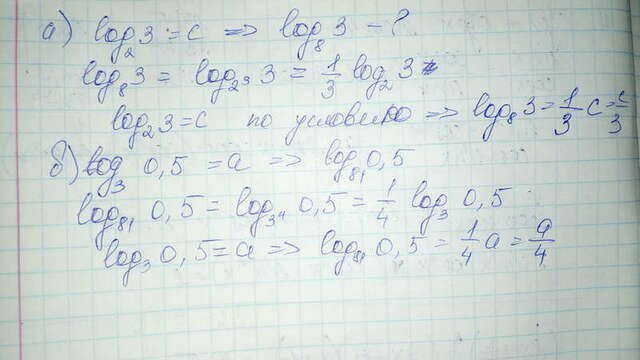 а) log₂3 = c => log₈3 - ?
log₈3 = log₂³ 3 = 1/3 log₂3
log₂3 = c по условию => log₈3 = 1/3 c = c/3
б) log₃ 0,5 = a => log₈₁0,5
log₈₁ 0,5 = log₃⁴ 0,5 = 1/4 log₃ 0,5
log₃ 0,5 = a => log₈₁ 0,5 = 1/4 a = a/4